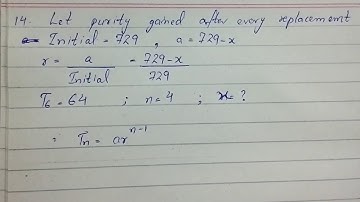 14. Let purity gained after every replacement
Initial = 729 , a = 729-x
r = a/Initial = 729-x/729
T6 = 64 ; n=4 ; x= ?
= Tn = ar^n-1